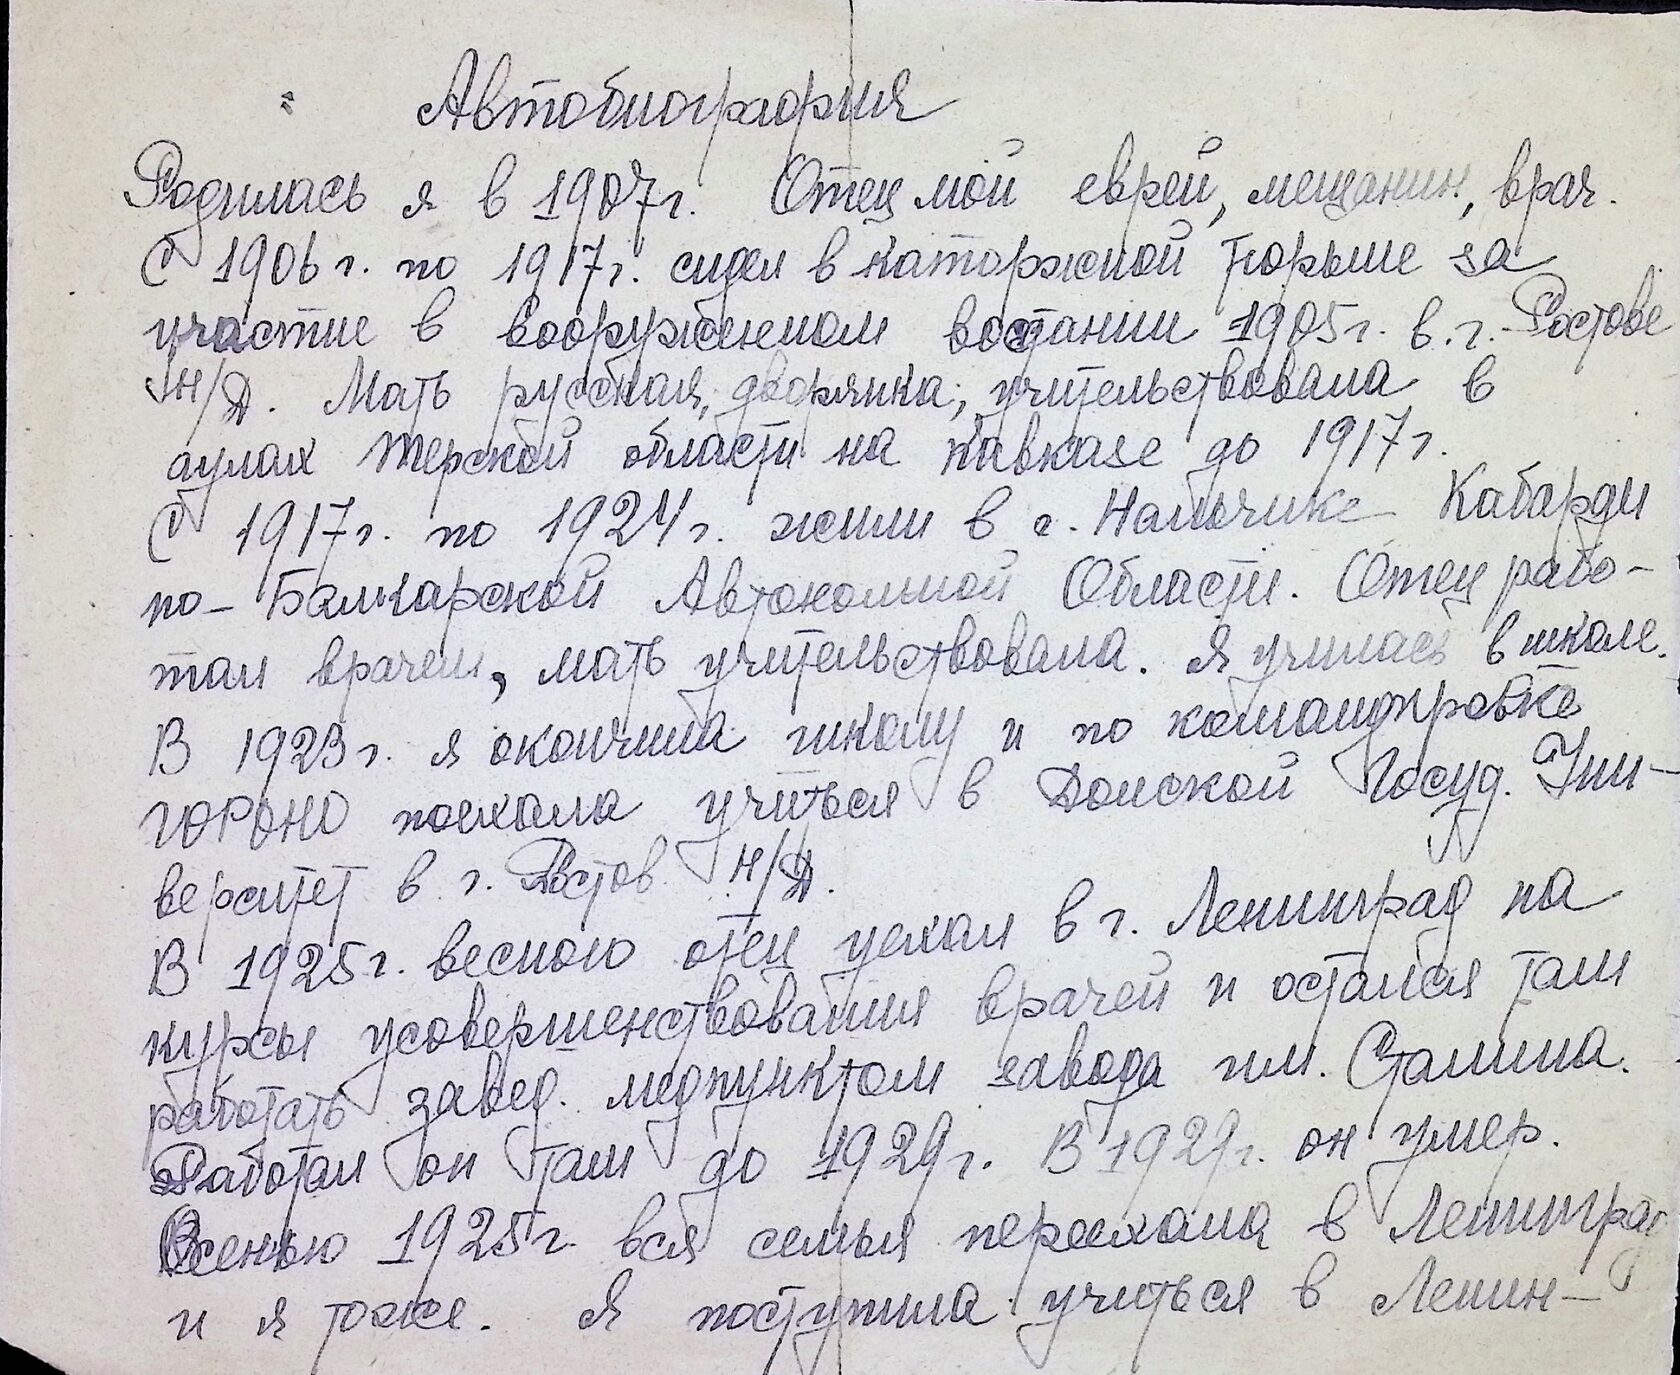 Автобиография
Родилась я в 1907г. Отец мой еврей, мещанин, врач.
С 1906г. по 1917г. сидел в каторжной тюрьме за
участие в вооруженном востании 1905г. в г. Ростове
н/Д. Мать русская, дворянка, учительствовала в
аулах Терской области на Кавказе до 1917г.
С 1917г. по 1924г. жили в г. Нальчике Кабарди
но-Балкарской Автономной Области. Отец рабо-
тал врачем, мать учительствовала. Я училась в школе.
В 1923г. я окончила школу и по командировке
ГОРОНО поехала учиться в Донской Госуд. Уни-
верситет в г. Ростов н/Д.
В 1925г. весною отец уехал в г. Ленинград на
курсы усовершенствования врачей и остался там
работать завед. медпунктом завода им. Сталина.
Работал он там до 1929г. В 1929г. он умер.
Осенью 1925г. вся семья переехала в Ленинград
и я тоже. Я поступила учиться в Ленин-